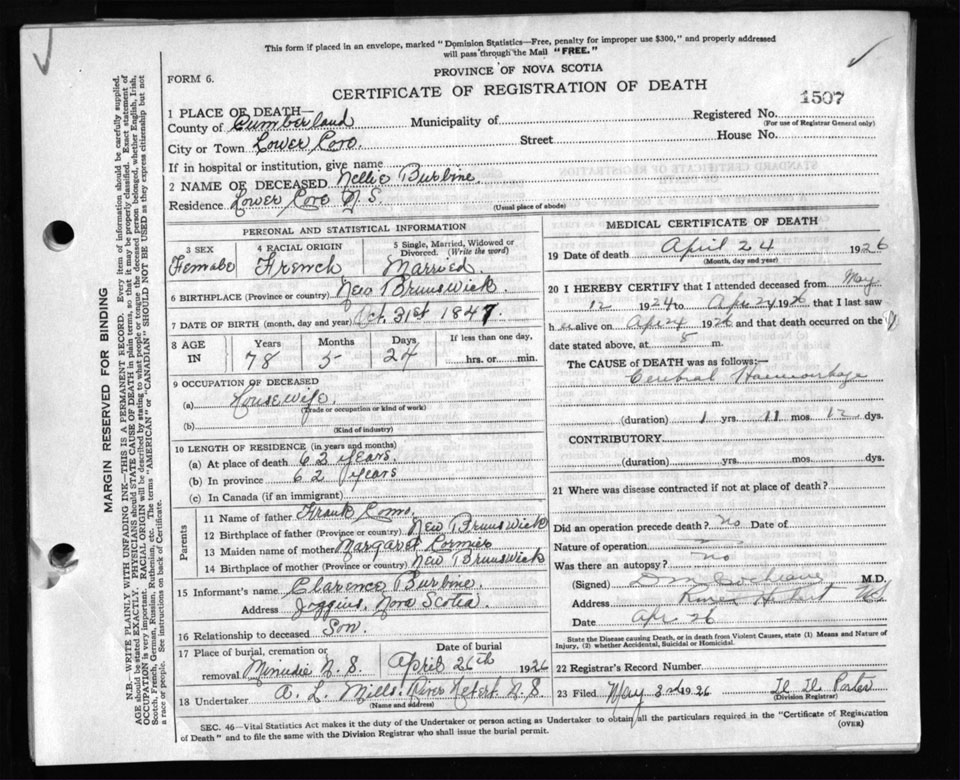 This form if placed in an envelope, marked "Dominion Statistics—Free, penalty for improper use $300," and properly addressed
will pass through the Mail "FREE."
PROVINCE OF NOVA SCOTIA
FORM 6.
CERTIFICATE OF REGISTRATION OF DEATH
1507
1 PLACE OF DEATH—
County of Cumberland Municipality of Registered No.
(For use of Registrar General only)
City or Town Lower Cove Street House No.
If in hospital or institution, give name
2 NAME OF DECEASED Nellie Burbine.
Residence Lower Cove N.S.
(Usual place of abode)
PERSONAL AND STATISTICAL INFORMATION
3 SEX
Female
4 RACIAL ORIGIN
French
5 Single, Married, Widowed or
Divorced. (Write the word)
Married.
6 BIRTHPLACE (Province or country) New Brunswick.
7 DATE OF BIRTH (month, day and year) Oct. 31st 1847
8 AGE
IN
Years Months Days If less than one day,
78 5 24 hrs. or min.
9 OCCUPATION OF DECEASED
(a) Housewife.
(Trade or occupation or kind of work)
(b)
(Kind of industry)
10 LENGTH OF RESIDENCE (in years and months)
(a) At place of death 62 years.
(b) In province 62 years
(c) In Canada (if an immigrant)
Parents
11 Name of father Frank
12 Birthplace of father (Province or country) New Brunswick
13 Maiden name of mother Margaret Cormier
14 Birthplace of mother (Province or country) New Brunswick
15 Informant's name Clarence Burbine.
Address Joggins, Nova Scotia.
16 Relationship to deceased Son.
17 Place of burial, cremation or
removal Minudie N.S.
Date of burial
April 26th 1926
18 Undertaker A. L. Mills. River Hebert N.S.
(Name and address)
MEDICAL CERTIFICATE OF DEATH
19 Date of death April 24 1926
(Month, day and year)
20 I HEREBY CERTIFY that I attended deceased from May
12 1924 to Apr 24 1926 that I last saw
her alive on Apr 24 1926 and that death occurred on the
date stated above, at 5 m.
The CAUSE of DEATH was as follows:—
Haemorrhage
(duration) 1 yrs. 11 mos. 12 dys.
CONTRIBUTORY
(duration) yrs. mos. dys.
21 Where was disease contracted if not at place of death?
Did an operation precede death? no Date of
Nature of operation
Was there an autopsy? no
(Signed) D M Cochrane M.D.
Address River Hebert NS
Date Apr 26
State the Disease causing Death, or in death from Violent Causes, state (1) Means and Nature of
Injury, (2) whether Accidental, Suicidal or Homicidal.
22 Registrar's Record Number
23 Filed May 3rd 1926 Porter
(Division Registrar)
SEC. 46—Vital Statistics Act makes it the duty of the Undertaker or person acting as Undertaker to obtain all the particulars required in the "Certificate of Registration
of Death" and to file the same with the Division Registrar who shall issue the burial permit. (OVER)
MARGIN RESERVED FOR BINDING
N.B.—WRITE PLAINLY WITH UNFADING INK—THIS IS A PERMANENT RECORD. Every item of information should be carefully supplied.
AGE should be stated EXACTLY. PHYSICIANS should STATE CAUSE OF DEATH in plain terms, so that it may be properly classified. Exact statement of
OCCUPATION is very important. RACIAL ORIGIN will be described by stating to what people or tongue the deceased person belonged, whether English, Irish,
Scotch, French, German, Russian, Ruthenian, etc. The terms "AMERICAN" or "CANADIAN" SHOULD NOT BE USED as they express citizenship but not
a race or people. See instructions on back of Certificate.